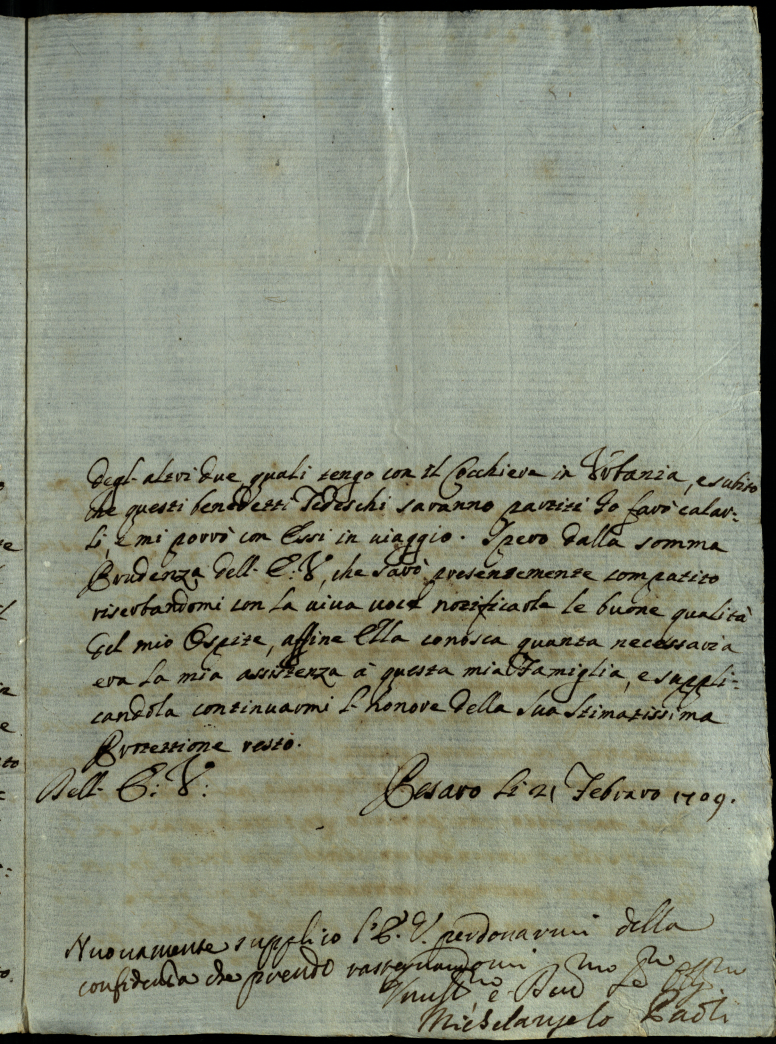 degl'altri due quali tengo con il Cocchiere in Urbania, e subito
che questi benedetti Tedeschi saranno partiti Io farò calar-
li, e mi porrò con Essi in uiaggio. Spero dalla somma
Prudenza dell'E: V., che sarò presentemente compatito
riserbandomi con la uiua uoce notificarle le buone qualità
del mio Ospite, affine Ella conosca quanta necessaria
era la mia assistenza à questa mia Famiglia, e suppli-
candola continuarmi l'honore della sua stimatissima
Protettione resto.
Dell'E: V:
Pesaro li 21 Febraro 1709.
Nuouamente supplico l'E. V. perdonarmi della
confidenza che prendo rassegnandomi
Michelangelo Paoli